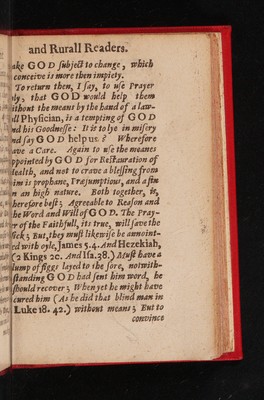 and Rurall Readers.
ake GOD subject to change, which
conceive is more then impiety.
To return then, I say, to use Prayer
ly, that GOD would help them
ithout the means by the hand of a law-
ll Physician, is a tempting of GOD
nd his Goodnesse: It is to lye in misery
nd say GOD help us? Wherefore
ave a Care. Again to use the meanes
ppointed by GOD for Restauration of
Health, and not to crave a blessing from
him is prophane, Præsumptious, and
n an high nature. Both together, is,
herefore best; Agreeable to Reason and
he Word and Will of GOD. The Pray-
er of the Faithfull, its true, will save the
sick; But, they must likewise be annoint-
ed with oyle, James 5.4. And Hezekiah,
(2 Kings 20. And Isa. 38.) Must have a
lump of figgs layed to the sore, notwith-
standing GOD had sent him word, he
should recover; When yet he might have
cured him (As he did that blind man in
Luke 18. 42.) without means; But to
convince